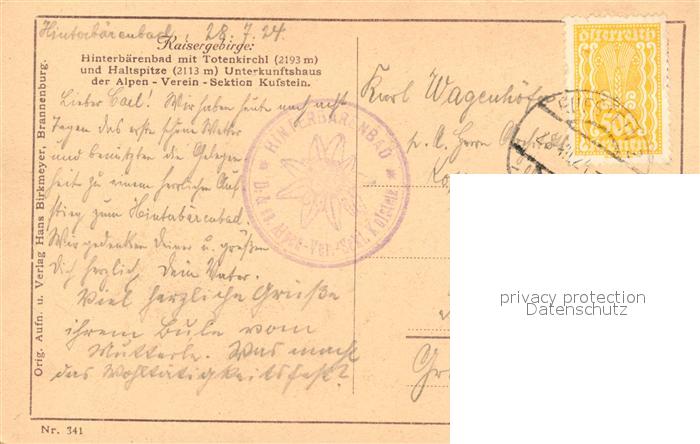 Hinterbärenbad, 28.7.24.
Kaisergebirge:
Hinterbärenbad mit Totenkirchl (2193 m)
und Haltspitze (2113 m) Unterkunftshaus
der Alpen - Verein - Sektion Kufstein.
Lieber Carl! Wir haben heute nach acht
Tagen das erste schöne Wetter
und benützten die Gelegen-
heit zu einem herrlichen Auf-
stieg zum Hinterbärenbad.
Wir gedenken Deiner u. grüßen
Dich herzlich, Dein Vater.
Viel herzliche Grüße
ihrem Bule vom
Mutterle. Was macht
das Wohltätigkeitsfest?
Orig. Aufn. u. Verlag Hans Birkmeyer, Brannenburg.
Nr. 341
HINTERBÄRENBAD
D. & Ö. Alpen-Ver.-Sekt. Kufstein
Karl Wagenhöfer
p. A. Herrn
österreich
500
privacy protection
Datenschutz